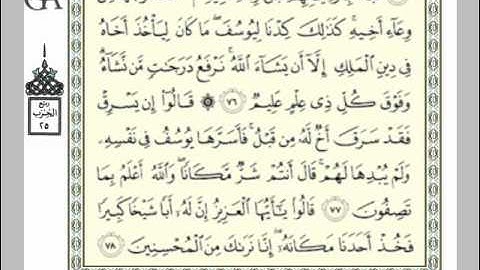 GA
وِعَآءِ أَخِيهِ ۚ كَذَٰلِكَ كِدْنَا لِيُوسُفَ ۖ مَا كَانَ لِيَأْخُذَ أَخَاهُ
فِى دِينِ ٱلْمَلِكِ إِلَّآ أَن يَشَآءَ ٱللَّهُ ۚ نَرْفَعُ دَرَجَٰتٍ مَّن نَّشَآءُ ۗ
وَفَوْقَ كُلِّ ذِى عِلْمٍ عَلِيمٌ ٧٦ ۞ قَالُوٓا۟ إِن يَسْرِقْ
فَقَدْ سَرَقَ أَخٌ لَّهُۥ مِن قَبْلُ ۚ فَأَسَرَّهَا يُوسُفُ فِى نَفْسِهِۦ
وَلَمْ يُبْدِهَا لَهُمْ ۚ قَالَ أَنتُمْ شَرٌّ مَّكَانًا ۖ وَٱللَّهُ أَعْلَمُ بِمَا
تَصِفُونَ ٧٧ قَالُوا۟ يَٰٓأَيُّهَا ٱلْعَزِيزُ إِنَّ لَهُۥٓ أَبًا شَيْخًا كَبِيرًا
فَخُذْ أَحَدَنَا مَكَانَهُۥٓ ۖ إِنَّا نَرَىٰكَ مِنَ ٱلْمُحْسِنِينَ ٧٨
ربع
الحزب
٢٥